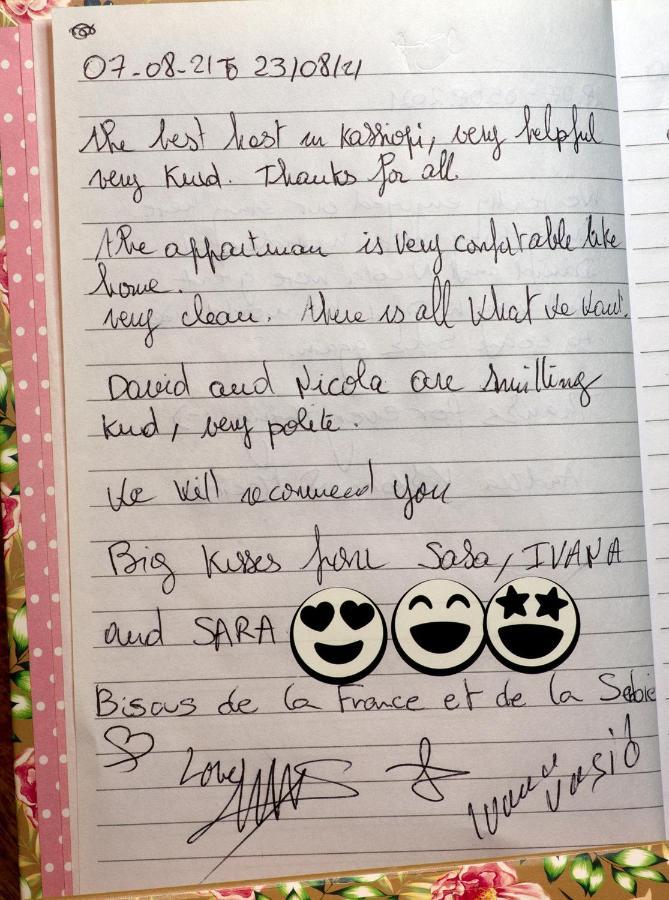 07-08-21 To 23/08/21
The best host in Kassiopi, very helpful
very Kind. Thanks for all.
The appartman is very confortable like
home.
very clean. there is all what we want.
David and Nicola are smilling
Kind, very polite.
We will recommend you
Big Kisses from Sasa, IVANA
and SARA
Bisous de la France et de la Sebie
Love
Ivana Vasić